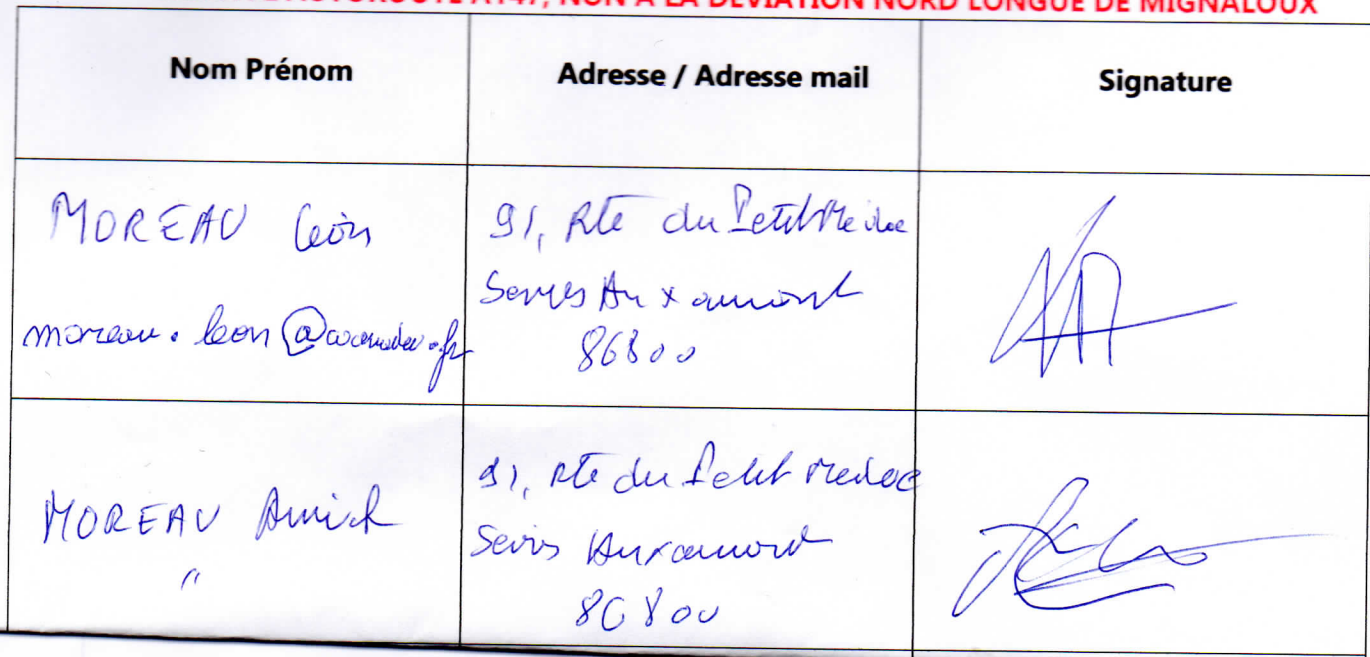 AUTOROUTE A147, NON A LA DEVIATION NORD LONGUE DE MIGNALOUX
Nom Prénom
Adresse / Adresse mail
Signature
MOREAU Léon
moreau.leon@wanadoo.fr
91, Rte du Petit Médoc
Sevres Anxaumont
86800
MOREAU
"
91, Rte du Petit Medoc
Sevres Anxaumont
86800